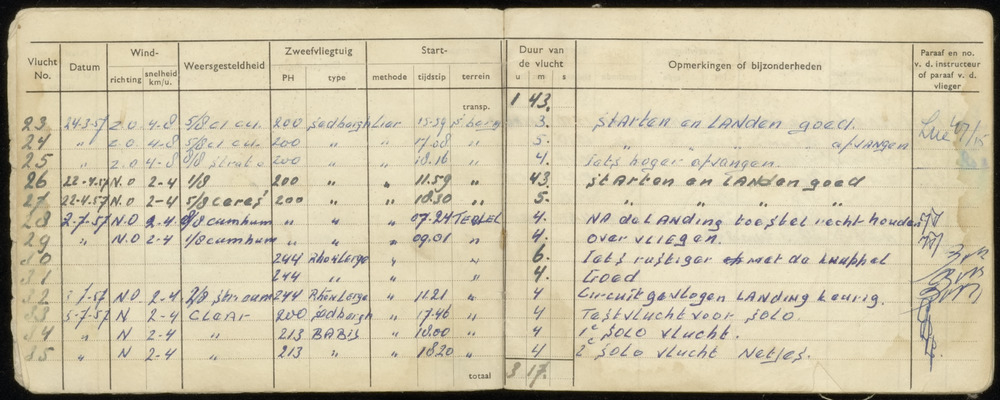 Vlucht No. Datum Wind- richting snelheid km/u. Weersgesteldheid Zweefvliegtuig PH type Start- methode tijdstip terrein Duur van de vlucht u m s Opmerkingen of bijzonderheden Paraaf en no. v. d. instructeur of paraaf v. d. vlieger
transp. 1 43.
23 24-3-57 Z.O 4-8 5/8 ci cu. 200 Sedbergh Lier 15.39 3. Starten en Landen goed.
24 " Z.O 4-8 5/8 ci cu. 200 " " 17.08 " 5. " " " afvangen
25 " Z.O 4-8 8/8 200 " " 18.16 " 4. Iets hoger afvangen.
26 22-4-57 N.O 2-4 1/8 200 " " 11.59 " 43. Starten en Landen goed
27 22-4-57 Z.O 2-4 5/8 200 " " 18.30 " 5. " " " "
28 2-7-57 N.O 2-4 cumhum " " " 07.24 4. Na de Landing toestel recht houden
29 " N.O 2-4 1/8 cumhum " " " 09.01 " 4. Over vliegen.
30 244 Rhönlerge " " 6. Iets rustiger met de knuppel
31 244 " " " 4. Goed
32 -7-57 N.O 2-4 2/8 244 Rhönlerge " 11.21 " 4 Circuit gevlogen Landing keurig.
33 5-7-57 N 2-4 Clear 200 Sedbergh " 17.46 " 4 Testvlucht voor solo.
34 " N 2-4 " 213 Babij " 18.00 " 4 1e solo vlucht.
35 " N 2-4 " 213 " " 18.20 " 4 2e solo vlucht Netjes.
totaal 3 17.